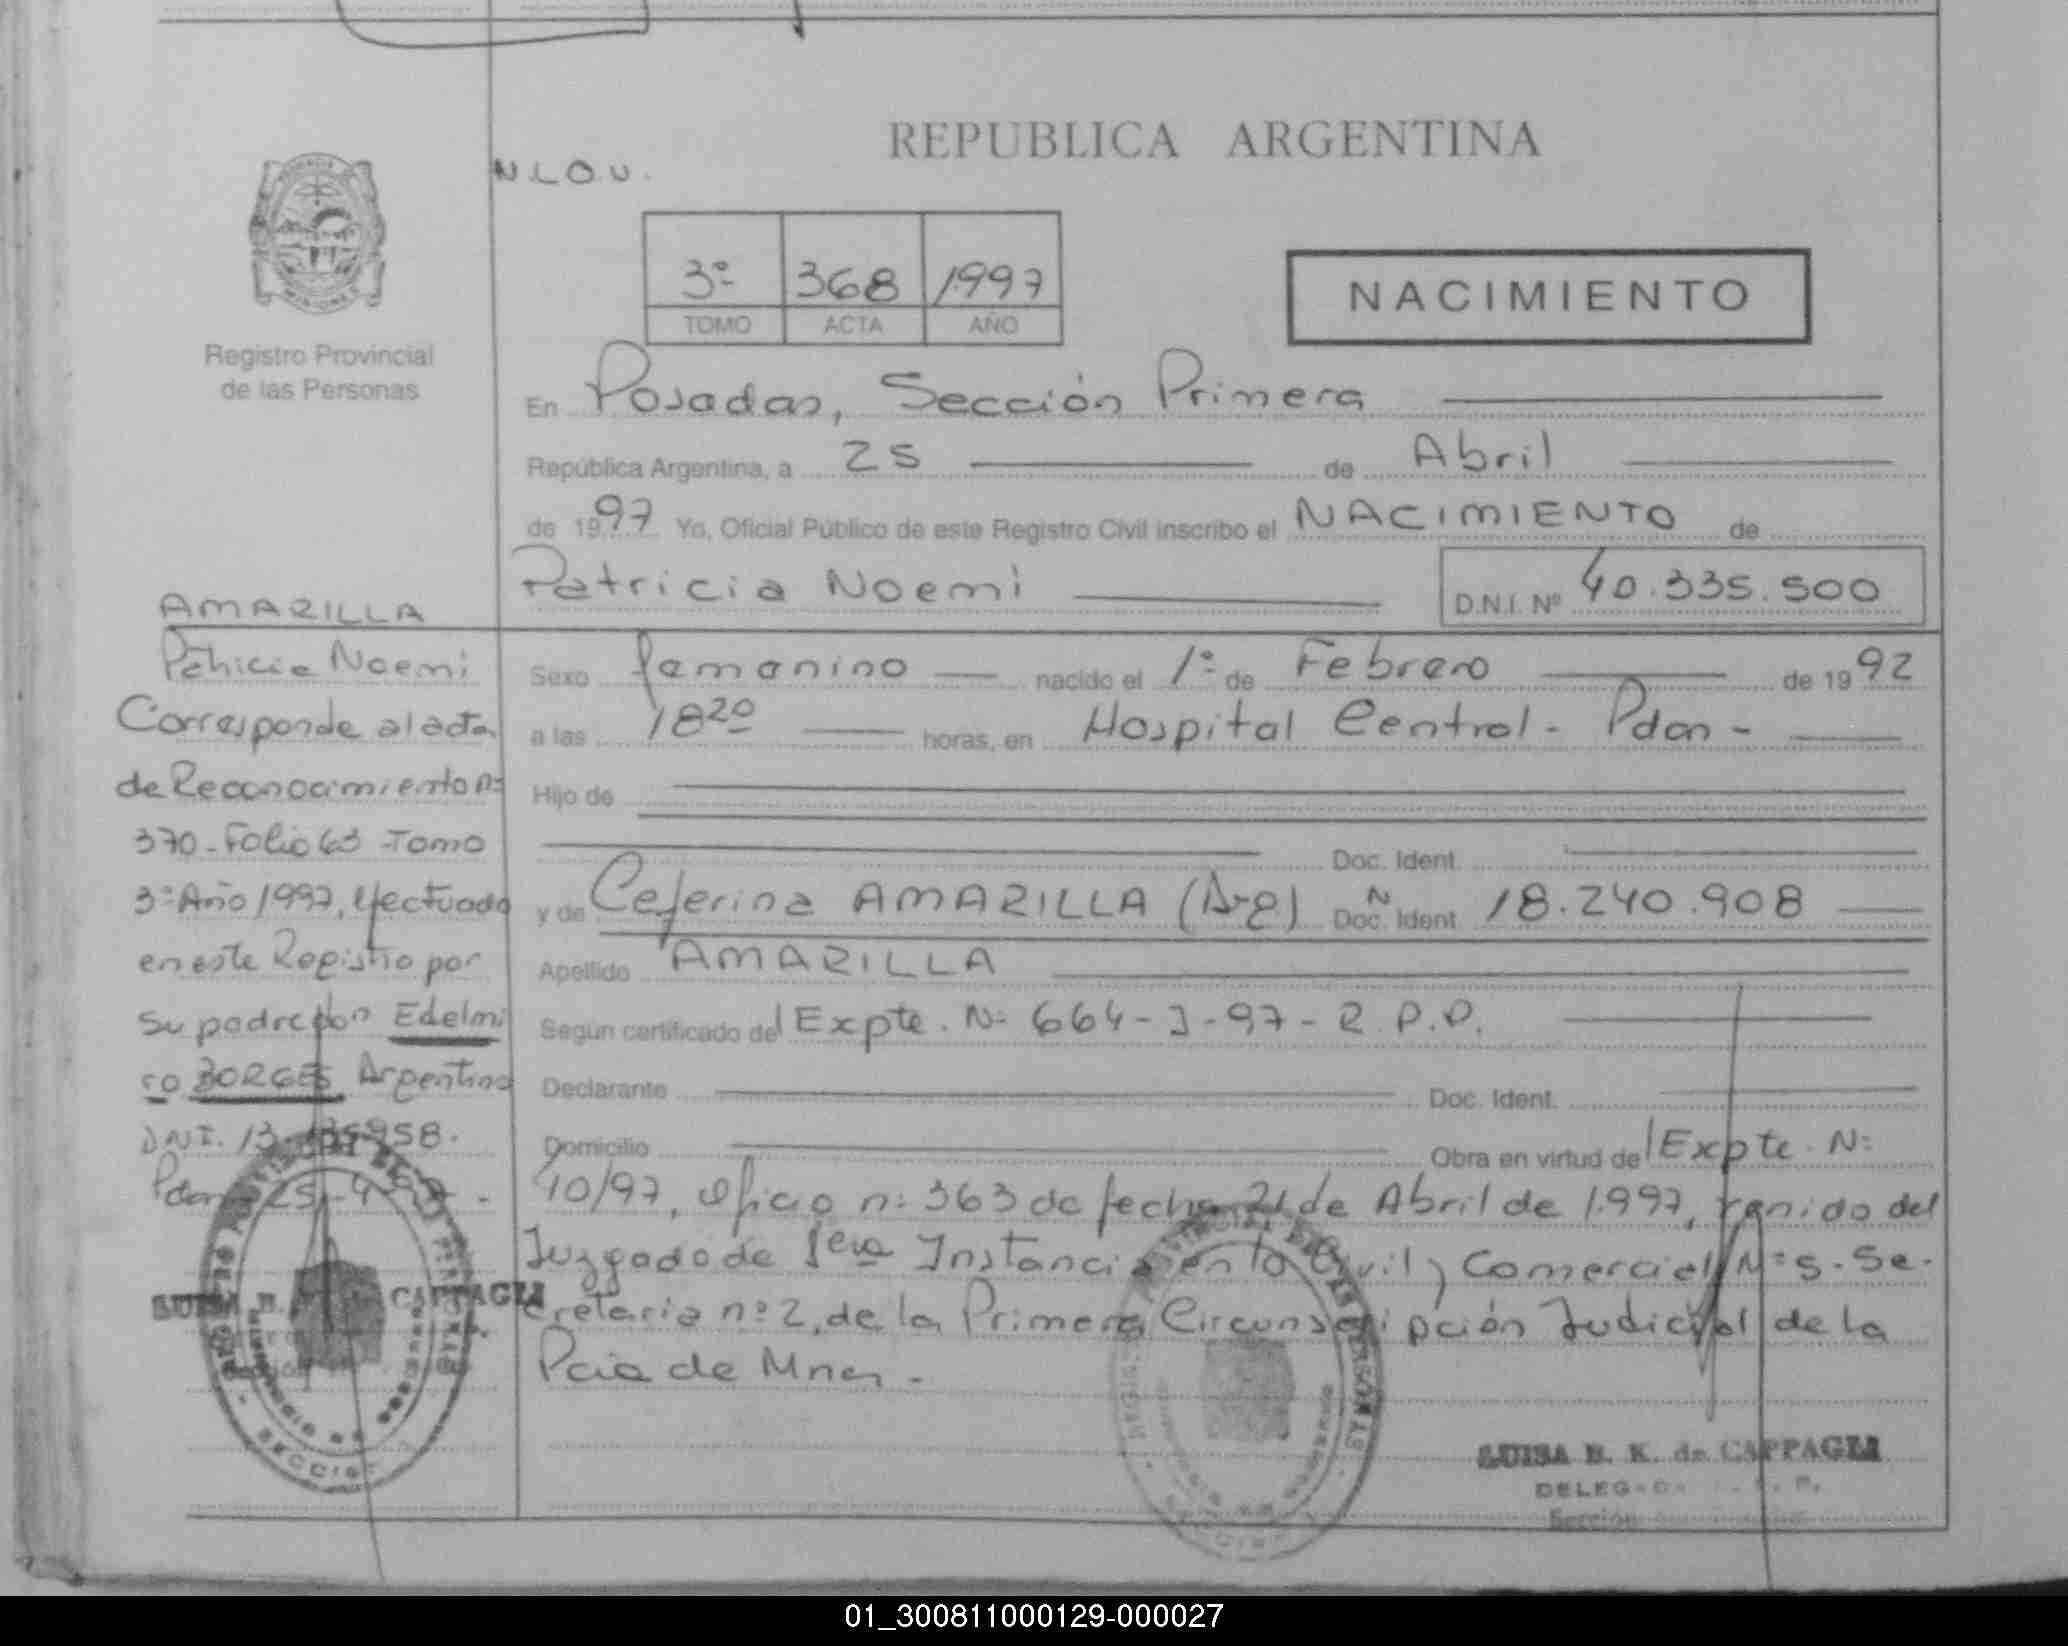 REPUBLICA ARGENTINA
N.L.O.U.
3º 368 1997
TOMO ACTA AÑO
NACIMIENTO
Registro Provincial
de las Personas
En Posadas, Sección Primera
República Argentina, a 25 de Abril
de 1997 Yo, Oficial Público de este Registro Civil inscribo el NACIMIENTO de
Patricia Noemi D.N.I. Nº 40.335.500
Sexo femenino nacido el 1º de Febrero de 1992
a las 18 20 horas, en Hospital Central - Pdas -
Hijo de
Doc. Ident.
y de Ceferina AMARILLA (Arg) Doc. Ident. N 18.240.908
Apellido AMARILLA
Según certificado del Expte. Nº 664-J-97-R.P.P.
Declarante Doc. Ident.
Domicilio Obra en virtud del Expte. Nº
40/97, Oficio nº 363 de fecha 21 de Abril de 1.997, venido del
Juzgado de 1era Instancia en lo Civil y Comercial Nº 5 - Se-
cretaria nº 2, de la Primera Circunscripción Judicial de la
Pcia de Mnes -
AMARILLA
Patricia Noemi
Corresponde al acta
de Reconocimiento nº
370 - Folio 63 - Tomo
3º Año 1997, efectuado
en este Registro por
su padre don Edelmi
ro BORGES Argentino
DNI. 13. 958.
Pdas 25-4-97 -
LUISA B. CAPPAGLI
SECCION
LUISA B. K. de CAPPAGLI
DELEG
Sección
01_300811000129-000027